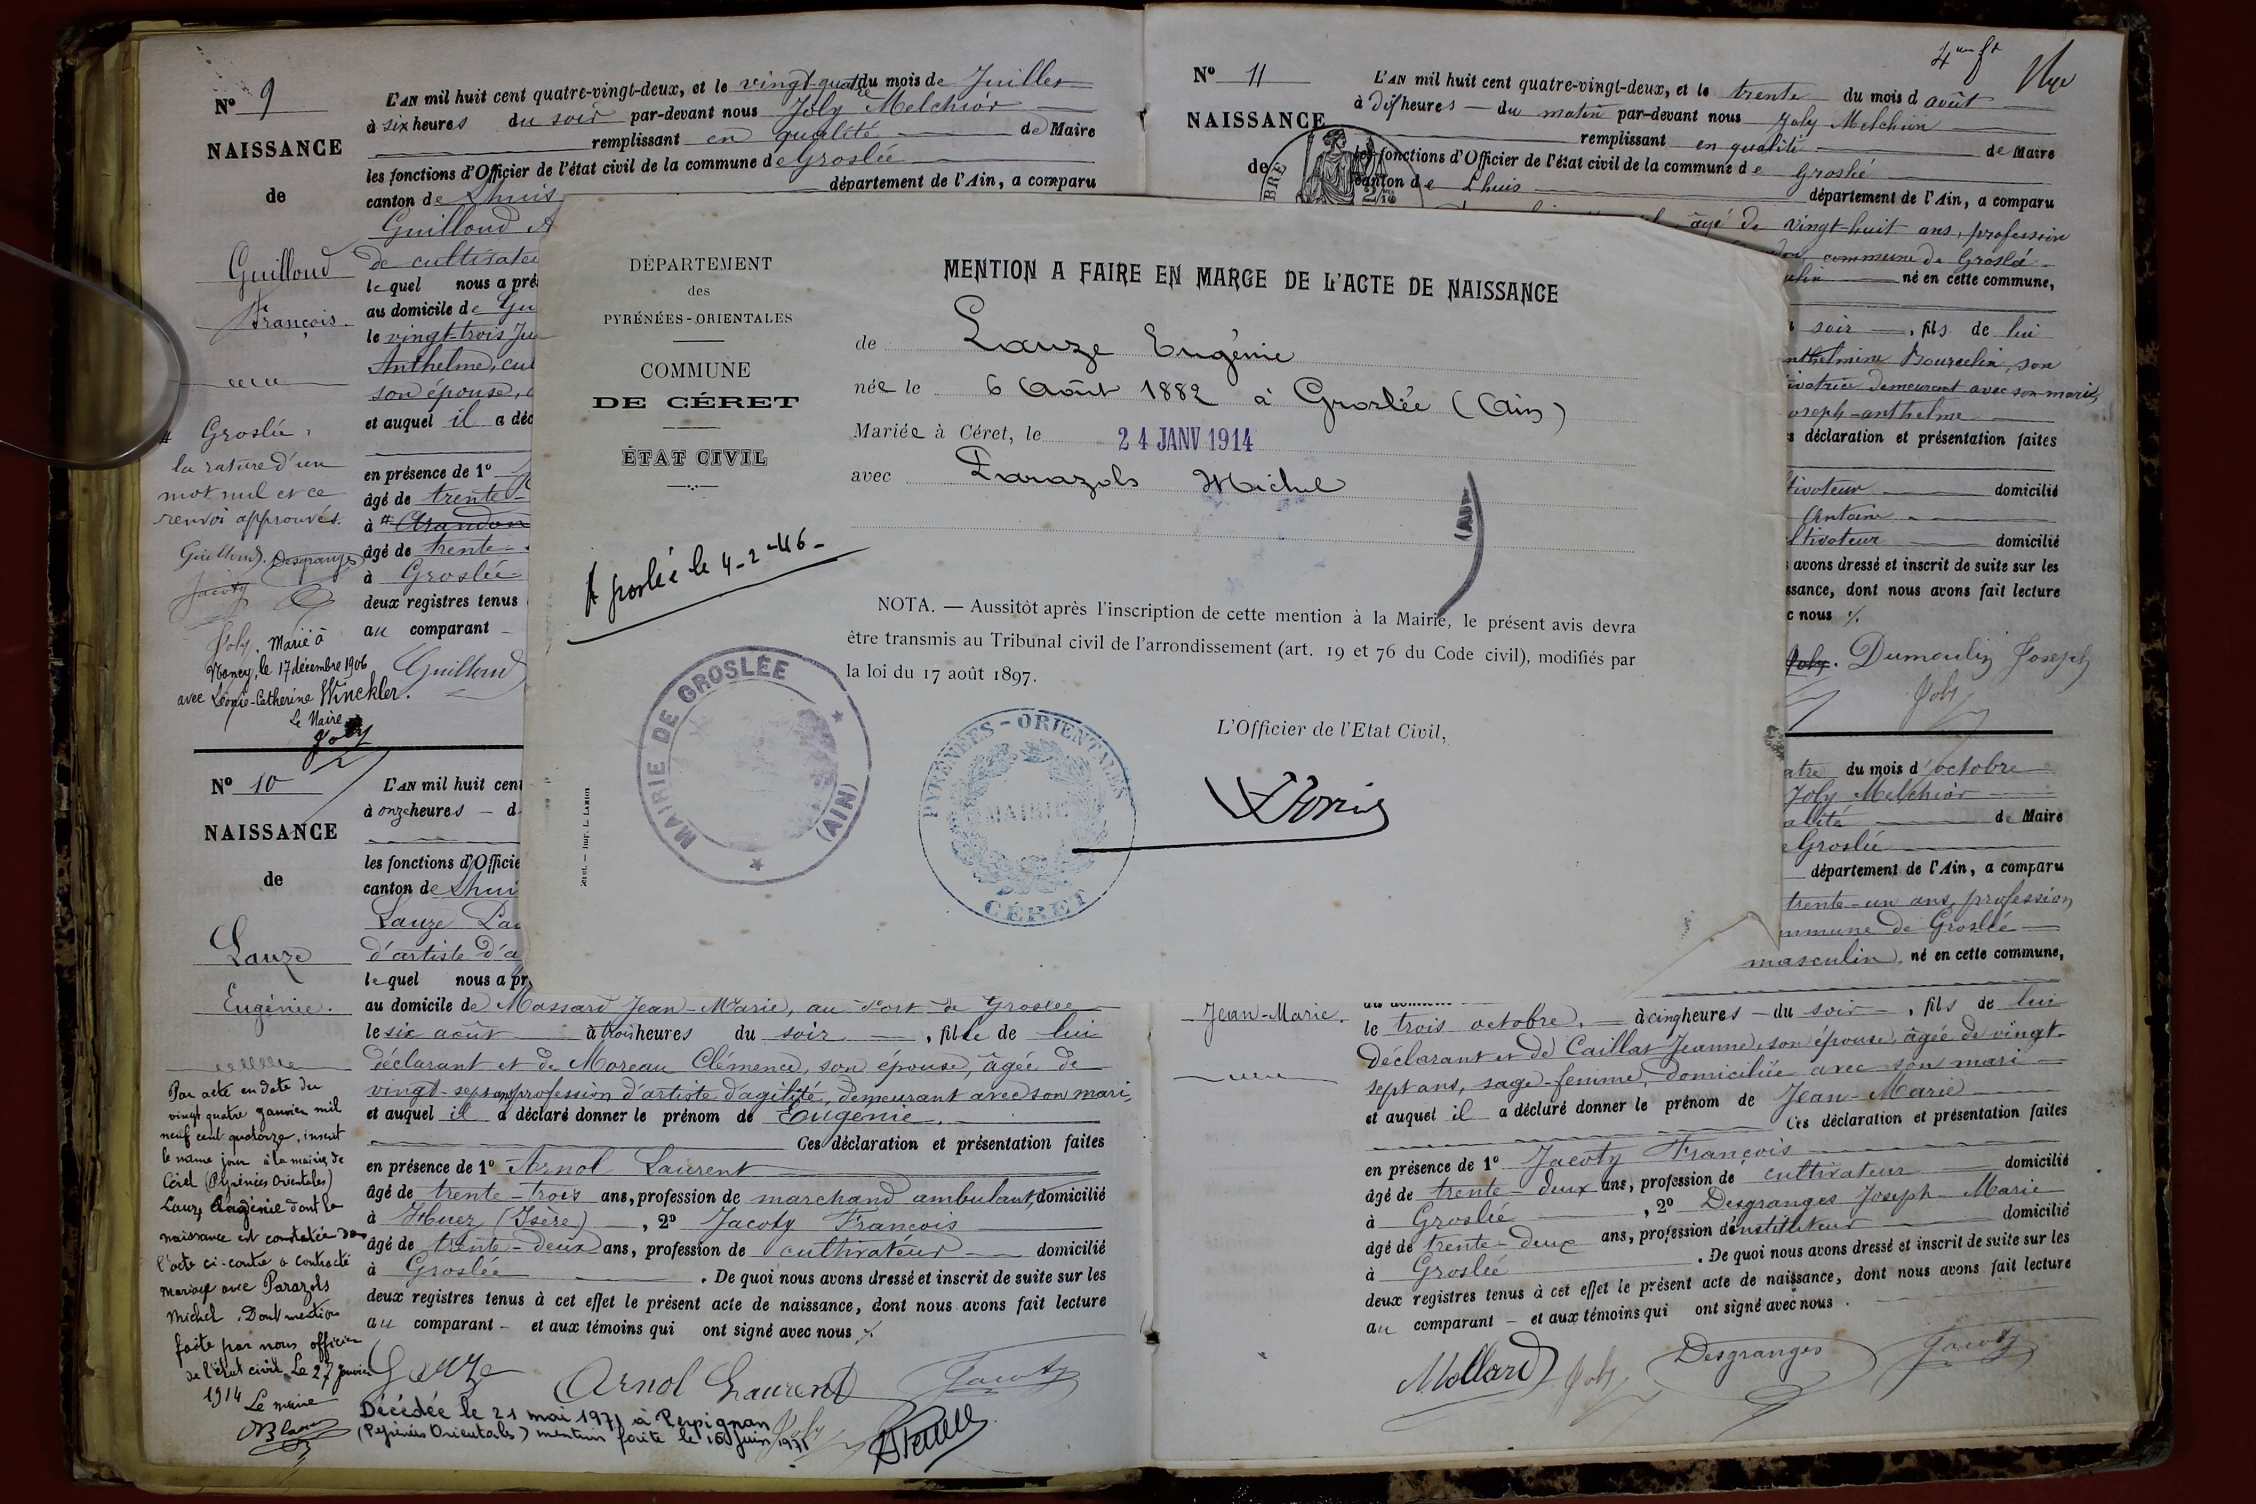 N° 9
NAISSANCE
de
Guilloud
François.
# Groslée,
la rature d'un
mot nul et ce
renvoi approuvés.
Guilloud. Desgranges
Jacoty
Joly. Marié à
Nancy, le 17 décembre 1906
avec Léonie-Catherine Winckler.
Le Maire
Joly
L'AN mil huit cent quatre-vingt-deux, et le vingt-quatre du mois de Juillet
à six heures du soir par-devant nous Joly Melchior
remplissant en qualité de Maire
les fonctions d'Officier de l'état civil de la commune de Groslée
canton de Lhuis département de l'Ain, a comparu
Guilloud A
de cultivateu
lequel nous a pré
au domicile de Gu
le vingt-trois Jui
Anthelme, cul
son épouse,
et auquel il a déc
en présence de 1°
âgé de trente-
à # Arandon
âgé de trente-
à Groslée
deux registres tenus
au comparant
Guilloud
N° 10
NAISSANCE
de
Lauze
Eugénie.
Par acte en date du
vingt quatre janvier mil
neuf cent quatorze, inscrit
le même jour à la mairie de
Céret (Pyrénées Orientales)
Lauze Eugénie dont la
naissance est constatée dans
l'acte ci-contre a contracté
mariage avec Parazols
Michel. Dont mention
faite par nous officier
de l'état civil. Le 27 janvier
1914 Le maire
L'AN mil huit cent
à onze heures - d
les fonctions d'Officie
canton de Lhui
Lauze
d'artiste d'a
lequel nous a pr
au domicile de Massard Jean-Marie, au Port de Groslée
le six août à trois heures du soir, fille de lui
déclarant et de Moreau Clémence, son épouse, âgée de
vingt-sept ans, profession d'artiste d'agilité, demeurant avec son mari,
et auquel il a déclaré donner le prénom de Eugénie.
Ces déclaration et présentation faites
en présence de 1° Arnol Laurent
âgé de trente-trois ans, profession de marchand ambulant, domicilié
à Huez (Isère), 2° Jacoty François
âgé de trente-deux ans, profession de cultivateur domicilié
à Groslée. De quoi nous avons dressé et inscrit de suite sur les
deux registres tenus à cet effet le présent acte de naissance, dont nous avons fait lecture
au comparant - et aux témoins qui ont signé avec nous
Lauze Arnol Laurent Jacoty
Joly
Décédée le 21 mai 1971 à Perpignan
(Pyrénées Orientales) mention faite le 16 juin 1971
DÉPARTEMENT
des
PYRÉNÉES-ORIENTALES
COMMUNE
DE CÉRET
ÉTAT CIVIL
MENTION A FAIRE EN MARGE DE L'ACTE DE NAISSANCE
de Lauze Eugénie
née le 6 Août 1882 à Groslée (Ain)
Mariée à Céret, le 24 JANV 1914
avec Parazols Michel
Groslée le 4-2-46-
NOTA. — Aussitôt après l'inscription de cette mention à la Mairie, le présent avis devra
être transmis au Tribunal civil de l'arrondissement (art. 19 et 76 du Code civil), modifiés par
la loi du 17 août 1897.
L'Officier de l'Etat Civil,
MAIRIE DE GROSLÉE
(AIN)
PYRÉNÉES-ORIENTALES
MAIRIE
CÉRET
Céret. — Imp. L. LAMIOT
N° 11
NAISSANCE
de
L'AN mil huit cent quatre-vingt-deux, et le trente du mois d'août
à dix heures - du matin par-devant nous Joly Melchior
remplissant en qualité de Maire
les fonctions d'Officier de l'état civil de la commune de Groslée
canton de Lhuis département de l'Ain, a comparu
âgé de vingt-huit ans, profession
commune de Groslée
né en cette commune,
soir, fils de lui
nthelmine Bourcelin, son
ivatrice demeurant avec son mari,
oseph-anthelme
s déclaration et présentation faites
tivateur domicilié
Antoine
ltivateur domicilié
avons dressé et inscrit de suite sur les
ssance, dont nous avons fait lecture
c nous
Joly. Dumoulin Joseph
Joly
atre du mois d'octobre
Joly Melchior
alité de Maire
Groslée
département de l'Ain, a comparu
trente-un ans, profession
mmune de Groslée
masculin, né en cette commune,
Jean-Marie.
le trois octobre, à cinq heures - du soir -, fils de lui
déclarant et de Caillat Jeanne, son épouse, âgée de vingt-
sept ans, sage-femme, domiciliée avec son mari
et auquel il a déclaré donner le prénom de Jean-Marie
Ces déclaration et présentation faites
en présence de 1° Jacoty François
âgé de trente-deux ans, profession de cultivateur domicilié
à Groslée, 2° Desgranges Joseph-Marie
âgé de trente-deux ans, profession d'instituteur domicilié
à Groslée. De quoi nous avons dressé et inscrit de suite sur les
deux registres tenus à cet effet le présent acte de naissance, dont nous avons fait lecture
au comparant - et aux témoins qui ont signé avec nous.
Mollard Joly Desgranges Jacoty